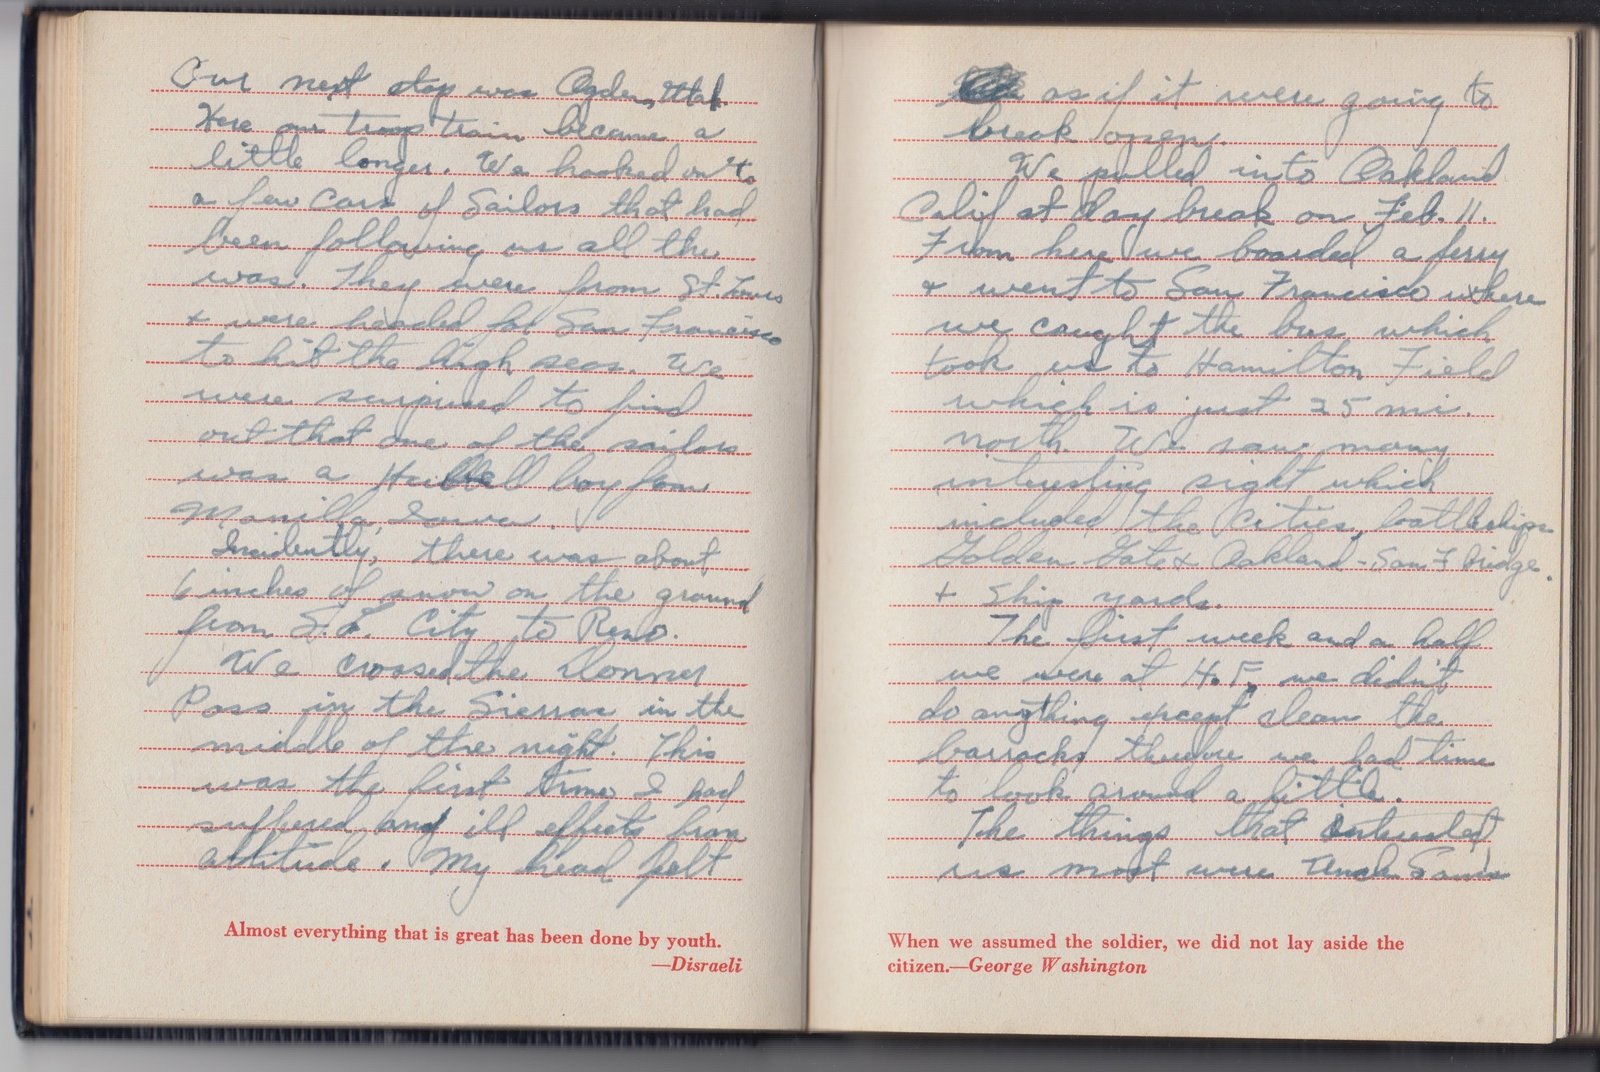 Our next stop was Ogden, Utah.
Here our troop train became a
little longer. We hooked on to
a few cars of Sailors that had
been following us all the
was. They were from St Louis
+ were headed for San Francisco
to hit the high seas. We
were surprised to find
out that one of the sailors
was a boy from
Manilla, Iowa.
Incidently, there was about
6 inches of snow on the ground
from S.L. City to Reno.
We crossed the Donner
Pass in the Sierras in the
middle of the night. This
was the first time I had
suffered any ill effects from
altitude. My head felt
Almost everything that is great has been done by youth.
—Disraeli
as if it were going to
break open.
We pulled into Oakland
Calif at day break on Feb. 11.
From here we boarded a ferry
+ went to San Francisco where
we caught the bus which
took us to Hamilton Field
which is just 25 mi.
north. We saw many
interesting sight which
included the Cities, battleships
Golden Gate & Oakland-San F bridge.
+ Ship yards.
The first week and a half
we were at H.F. we didn't
do anything except clean the
barracks therefore we had time
to look around a little.
The things that interested
us most were Uncle Sam's
When we assumed the soldier, we did not lay aside the
citizen.—George Washington